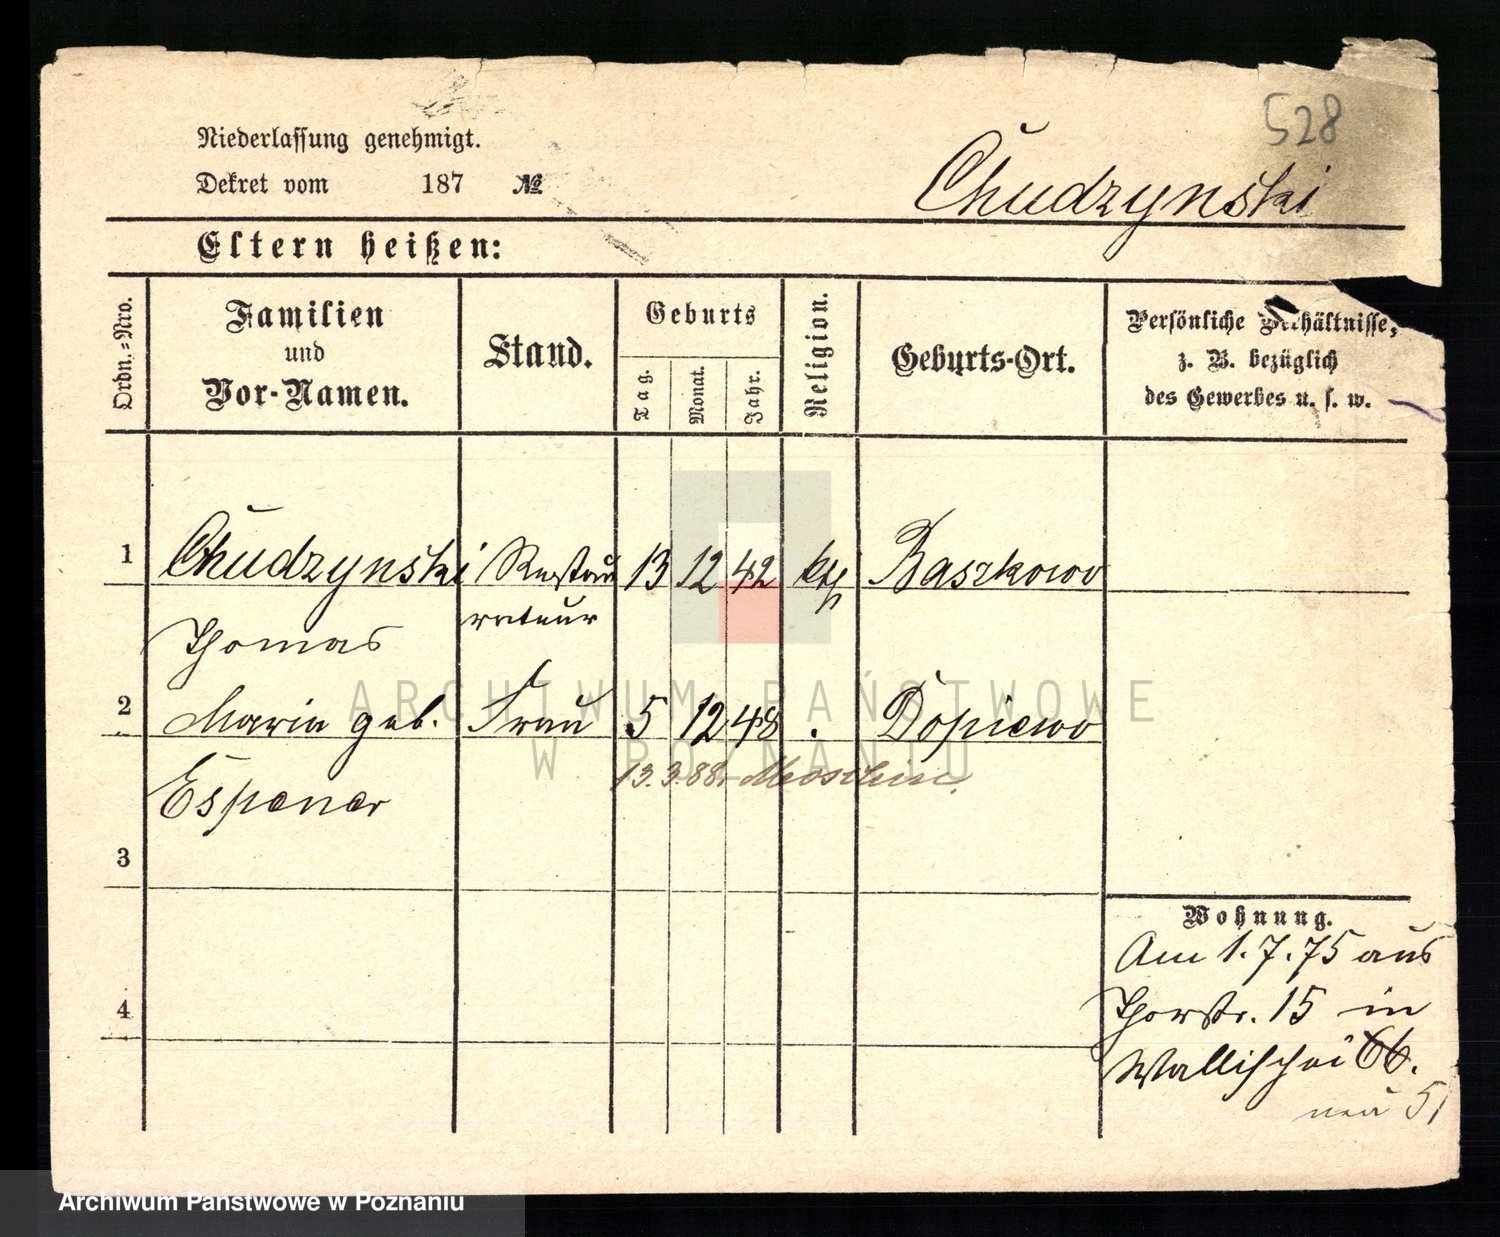 528
Niederlassung genehmigt.
Dekret vom 187 №
Chudzynski
Eltern heißen:
Ordn.-Nro.
Familien und Vor-Namen.
Stand.
Geburts
Tag.
Monat.
Jahr.
Religion.
Geburts-Ort.
Persönliche Verhältnisse,
z. B. bezüglich
des Gewerbes u. s. w.
1 Chudzynski Restau 13 12 42 kth Baszkowo
Thomas rateur
2 Maria geb. Frau 5 12 48 . Dopiewo
13.3.88. Moschin.
Espener
3
4
Wohnung.
Am 1.7.75 aus
Thorstr. 15 in
Wallischei 66.
neu 51
ARCHIWUM PAŃSTWOWE
W POZNANIU
Archiwum Państwowe w Poznaniu